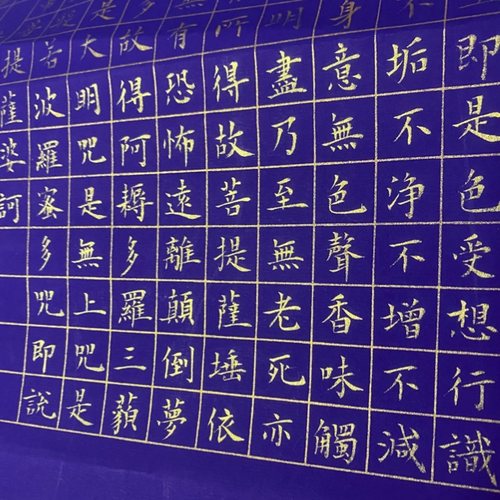 即是色受想行識
不垢不浄不增不減
身意無色聲香味觸
明盡乃至無老死亦
所得故菩提薩埵依
有恐怖遠離顛倒夢
多故得阿耨多羅三藐
是大明咒是無上咒是
般若波羅蜜多咒即説
提薩婆訶